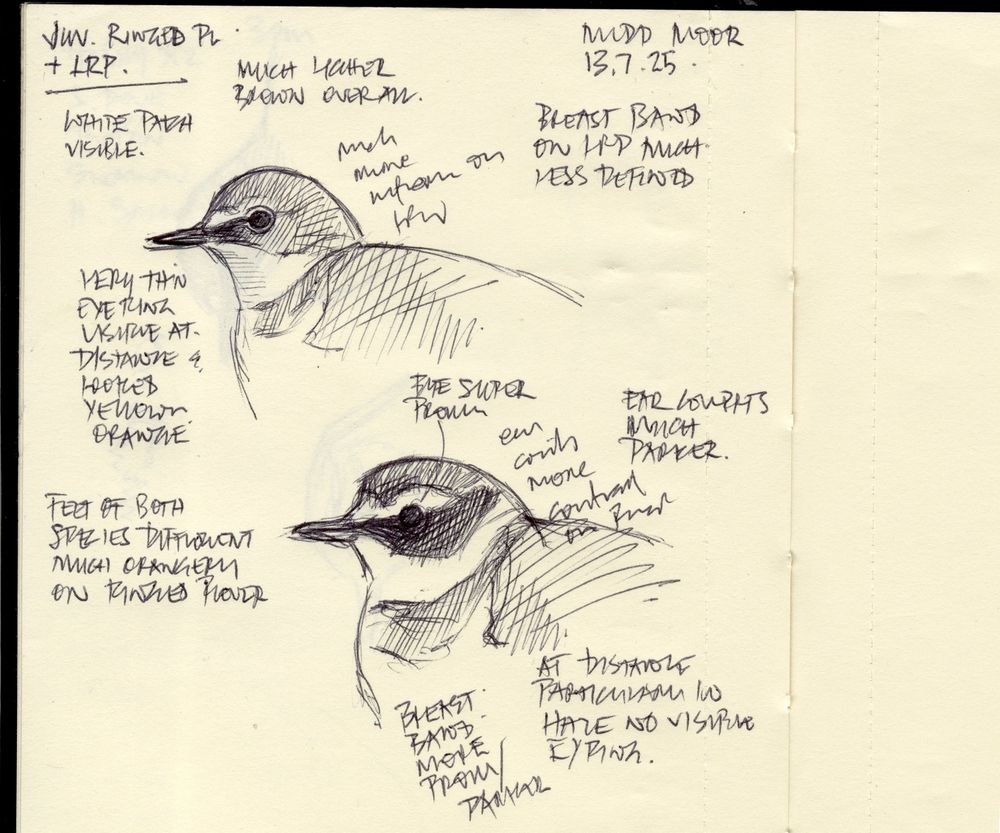 JUV. RINGED PL
+ LRP.
MUDD MOOR
13.7.25.
MUCH LIGHTER
BROWN OVERALL.
WHITE PATCH
VISIBLE.
BREAST BAND
ON LRP MUCH
LESS DEFINED
much
more
on
VERY THIN
EYE RING
VISIBLE AT
DISTANCE &
LOOKED
YELLOW
ORANGE
EYE SUPER
EAR COVERTS
MUCH
DARKER.
ear
coverts
more
contrast
on
FEET OF BOTH
SPECIES DIFFERENT
MUCH ORANGERY
ON RINGED PLOVER
AT DISTANCE
PARTICULARLY IN
HAZE NO VISIBLE
EYRING.
BREAST
BAND
MORE
PROM/
DARKER